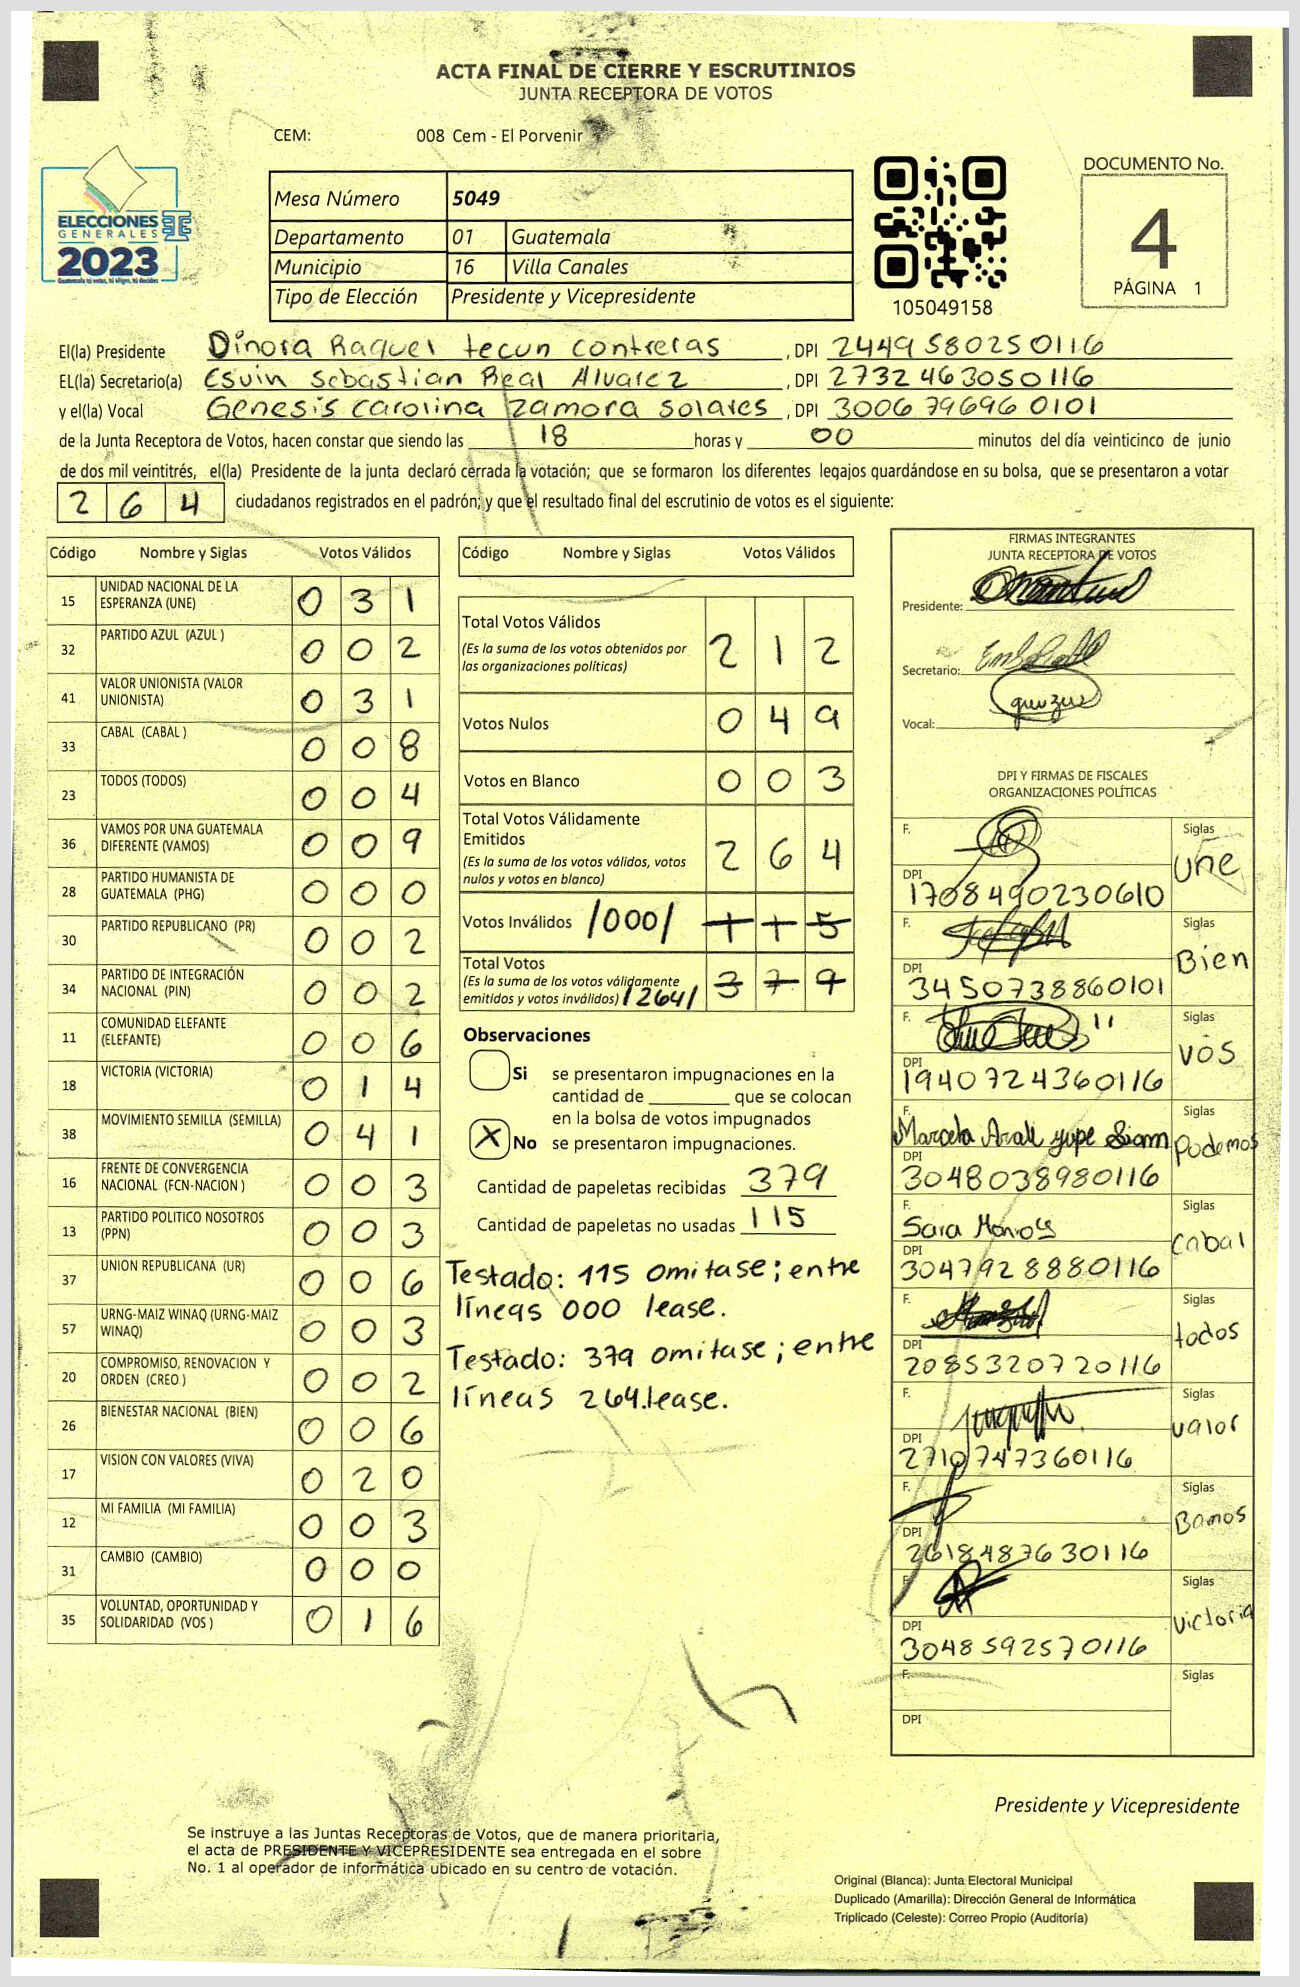 ACTA FINAL DE CIERRE Y ESCRUTINIOS
JUNTA RECEPTORA DE VOTOS
CEM: 008 Cem - El Porvenir
ELECCIONES
GENERALES
2023
Guatemala tú votas, tú eliges, tú decides
Mesa Número 5049
Departamento 01 Guatemala
Municipio 16 Villa Canales
Tipo de Elección Presidente y Vicepresidente
105049158
DOCUMENTO No.
4
PÁGINA 1
El(la) Presidente Dinora Raquel tecun contreras , DPI 2449580250116
EL(la) Secretario(a) Esvin Sebastian Real Alvarez , DPI 2732463050116
y el(la) Vocal Genesis carolina zamora solares , DPI 3006796960101
de la Junta Receptora de Votos, hacen constar que siendo las 18 horas y 00 minutos del día veinticinco de junio
de dos mil veintitrés, el(la) Presidente de la junta declaró cerrada la votación; que se formaron los diferentes legajos quardándose en su bolsa, que se presentaron a votar
264 ciudadanos registrados en el padrón; y que el resultado final del escrutinio de votos es el siguiente:
Código Nombre y Siglas Votos Válidos
15 UNIDAD NACIONAL DE LA ESPERANZA (UNE) 031
32 PARTIDO AZUL (AZUL ) 002
41 VALOR UNIONISTA (VALOR UNIONISTA) 031
33 CABAL (CABAL ) 008
23 TODOS (TODOS) 004
36 VAMOS POR UNA GUATEMALA DIFERENTE (VAMOS) 009
28 PARTIDO HUMANISTA DE GUATEMALA (PHG) 000
30 PARTIDO REPUBLICANO (PR) 002
34 PARTIDO DE INTEGRACIÓN NACIONAL (PIN) 002
11 COMUNIDAD ELEFANTE (ELEFANTE) 006
18 VICTORIA (VICTORIA) 014
38 MOVIMIENTO SEMILLA (SEMILLA) 041
16 FRENTE DE CONVERGENCIA NACIONAL (FCN-NACION ) 003
13 PARTIDO POLITICO NOSOTROS (PPN) 003
37 UNION REPUBLICANA (UR) 006
57 URNG-MAIZ WINAQ (URNG-MAIZ WINAQ) 003
20 COMPROMISO, RENOVACION Y ORDEN (CREO ) 002
26 BIENESTAR NACIONAL (BIEN) 006
17 VISION CON VALORES (VIVA) 020
12 MI FAMILIA (MI FAMILIA) 003
31 CAMBIO (CAMBIO) 000
35 VOLUNTAD, OPORTUNIDAD Y SOLIDARIDAD (VOS ) 016
Código Nombre y Siglas Votos Válidos
Total Votos Válidos 212
(Es la suma de los votos obtenidos por
las organizaciones políticas)
Votos Nulos 049
Votos en Blanco 003
Total Votos Válidamente
Emitidos 264
(Es la suma de los votos válidos, votos
nulos y votos en blanco)
Votos Inválidos /000/ 115
Total Votos
(Es la suma de los votos válidamente
emitidos y votos inválidos) /264/ 379
Observaciones
Si se presentaron impugnaciones en la
cantidad de ________ que se colocan
en la bolsa de votos impugnados
X No se presentaron impugnaciones.
Cantidad de papeletas recibidas 379
Cantidad de papeletas no usadas 115
Testado: 115 omitase; entre
líneas 000 lease.
Testado: 379 omitase; entre
líneas 264.lease.
FIRMAS INTEGRANTES
JUNTA RECEPTORA DE VOTOS
Presidente:
Secretario:
Vocal:
DPI Y FIRMAS DE FISCALES
ORGANIZACIONES POLÍTICAS
F. Siglas une
DPI 1708490230610
F. Siglas Bien
DPI 3450738860101
F. Siglas vos
DPI 1940724360116
F. Marcela Siglas Podemos
DPI 3048038980116
F. Sara Siglas cabal
DPI 3047928880116
F. Siglas todos
DPI 2085320720116
F. Siglas valor
DPI 2710747360116
F. Siglas Bamos
DPI 2618487630116
F. Siglas victoria
DPI 3048592570116
F. Siglas
DPI
Presidente y Vicepresidente
Se instruye a las Juntas Receptoras de Votos, que de manera prioritaria,
el acta de PRESIDENTE Y VICEPRESIDENTE sea entregada en el sobre
No. 1 al operador de informática ubicado en su centro de votación.
Original (Blanca): Junta Electoral Municipal
Duplicado (Amarilla): Dirección General de Informática
Triplicado (Celeste): Correo Propio (Auditoría)